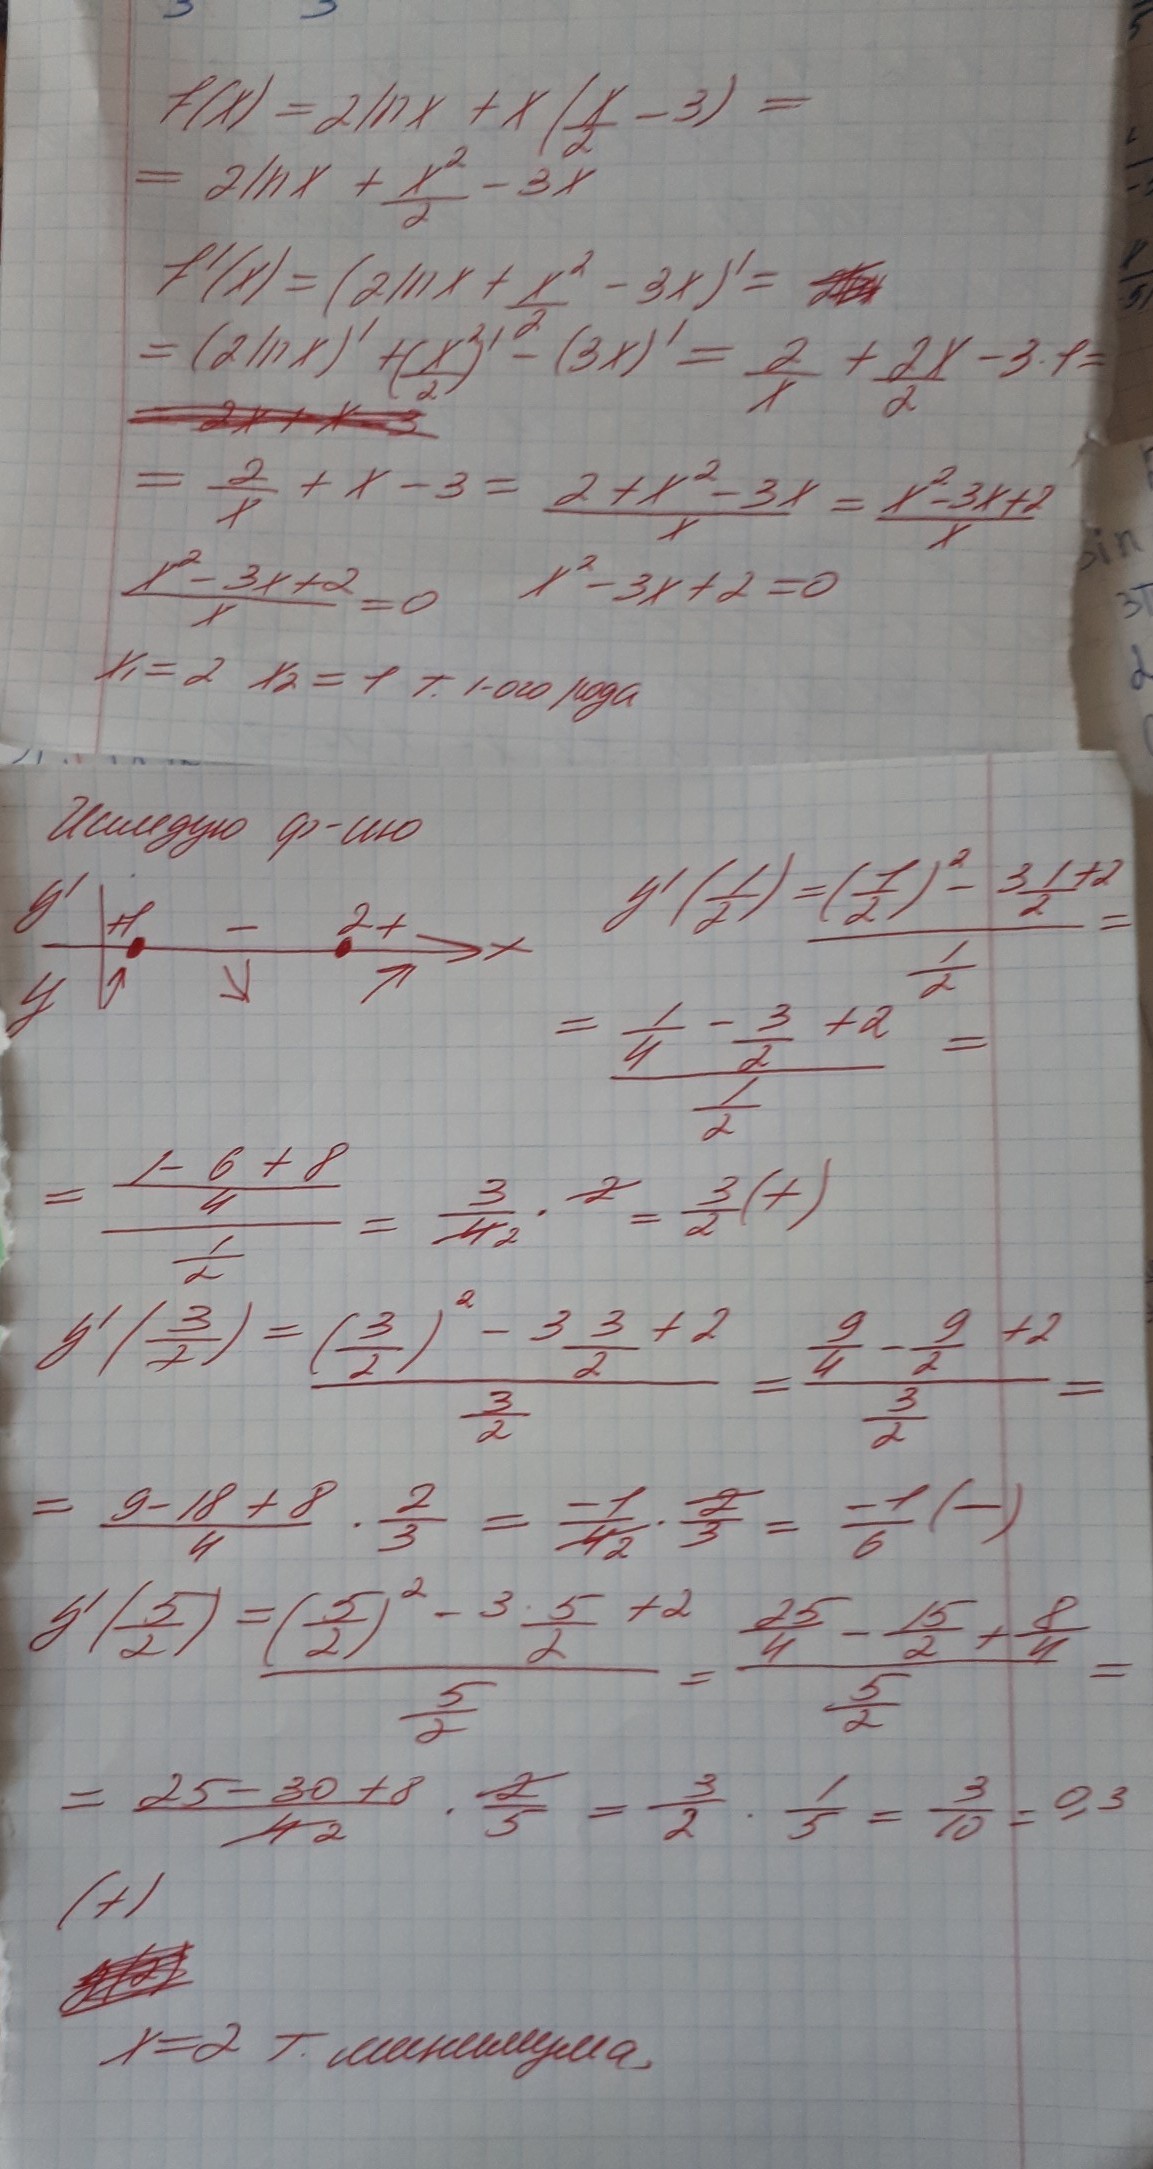 f(x) = 2lnx + x(x/2 - 3) =
= 2lnx + x²/2 - 3x
f'(x) = (2lnx + x²/2 - 3x)' =
= (2lnx)' + (x²/2)' - (3x)' = 2/x + 2x/2 - 3·1 =
= 2/x + x - 3 = (2+x²-3x)/x = (x²-3x+2)/x
(x²-3x+2)/x = 0 x²-3x+2=0
x₁=2 x₂=1 т. 1-ого рода
Исследую ф-ию
y' + 1 - 2 + x
y
y'(1/2) = ((1/2)² - 3 1/2 + 2)/(1/2) =
= (1/4 - 3/2 + 2)/(1/2) =
= ((1-6+8)/4)/(1/2) = 3/4 2 · 2 = 3/2 (+)
y'(3/2) = ((3/2)² - 3 3/2 + 2)/(3/2) = (9/4 - 9/2 + 2)/(3/2) =
= (9-18+8)/4 · 2/3 = -1/4 2 · 2/3 = -1/6 (-)
y'(5/2) = ((5/2)² - 3·5/2 + 2)/(5/2) = (25/4 - 15/2 + 8/4)/(5/2) =
= (25-30+8)/4 2 · 2/5 = 3/2 · 1/5 = 3/10 = 0,3
(+)
x=2 т. минимума.